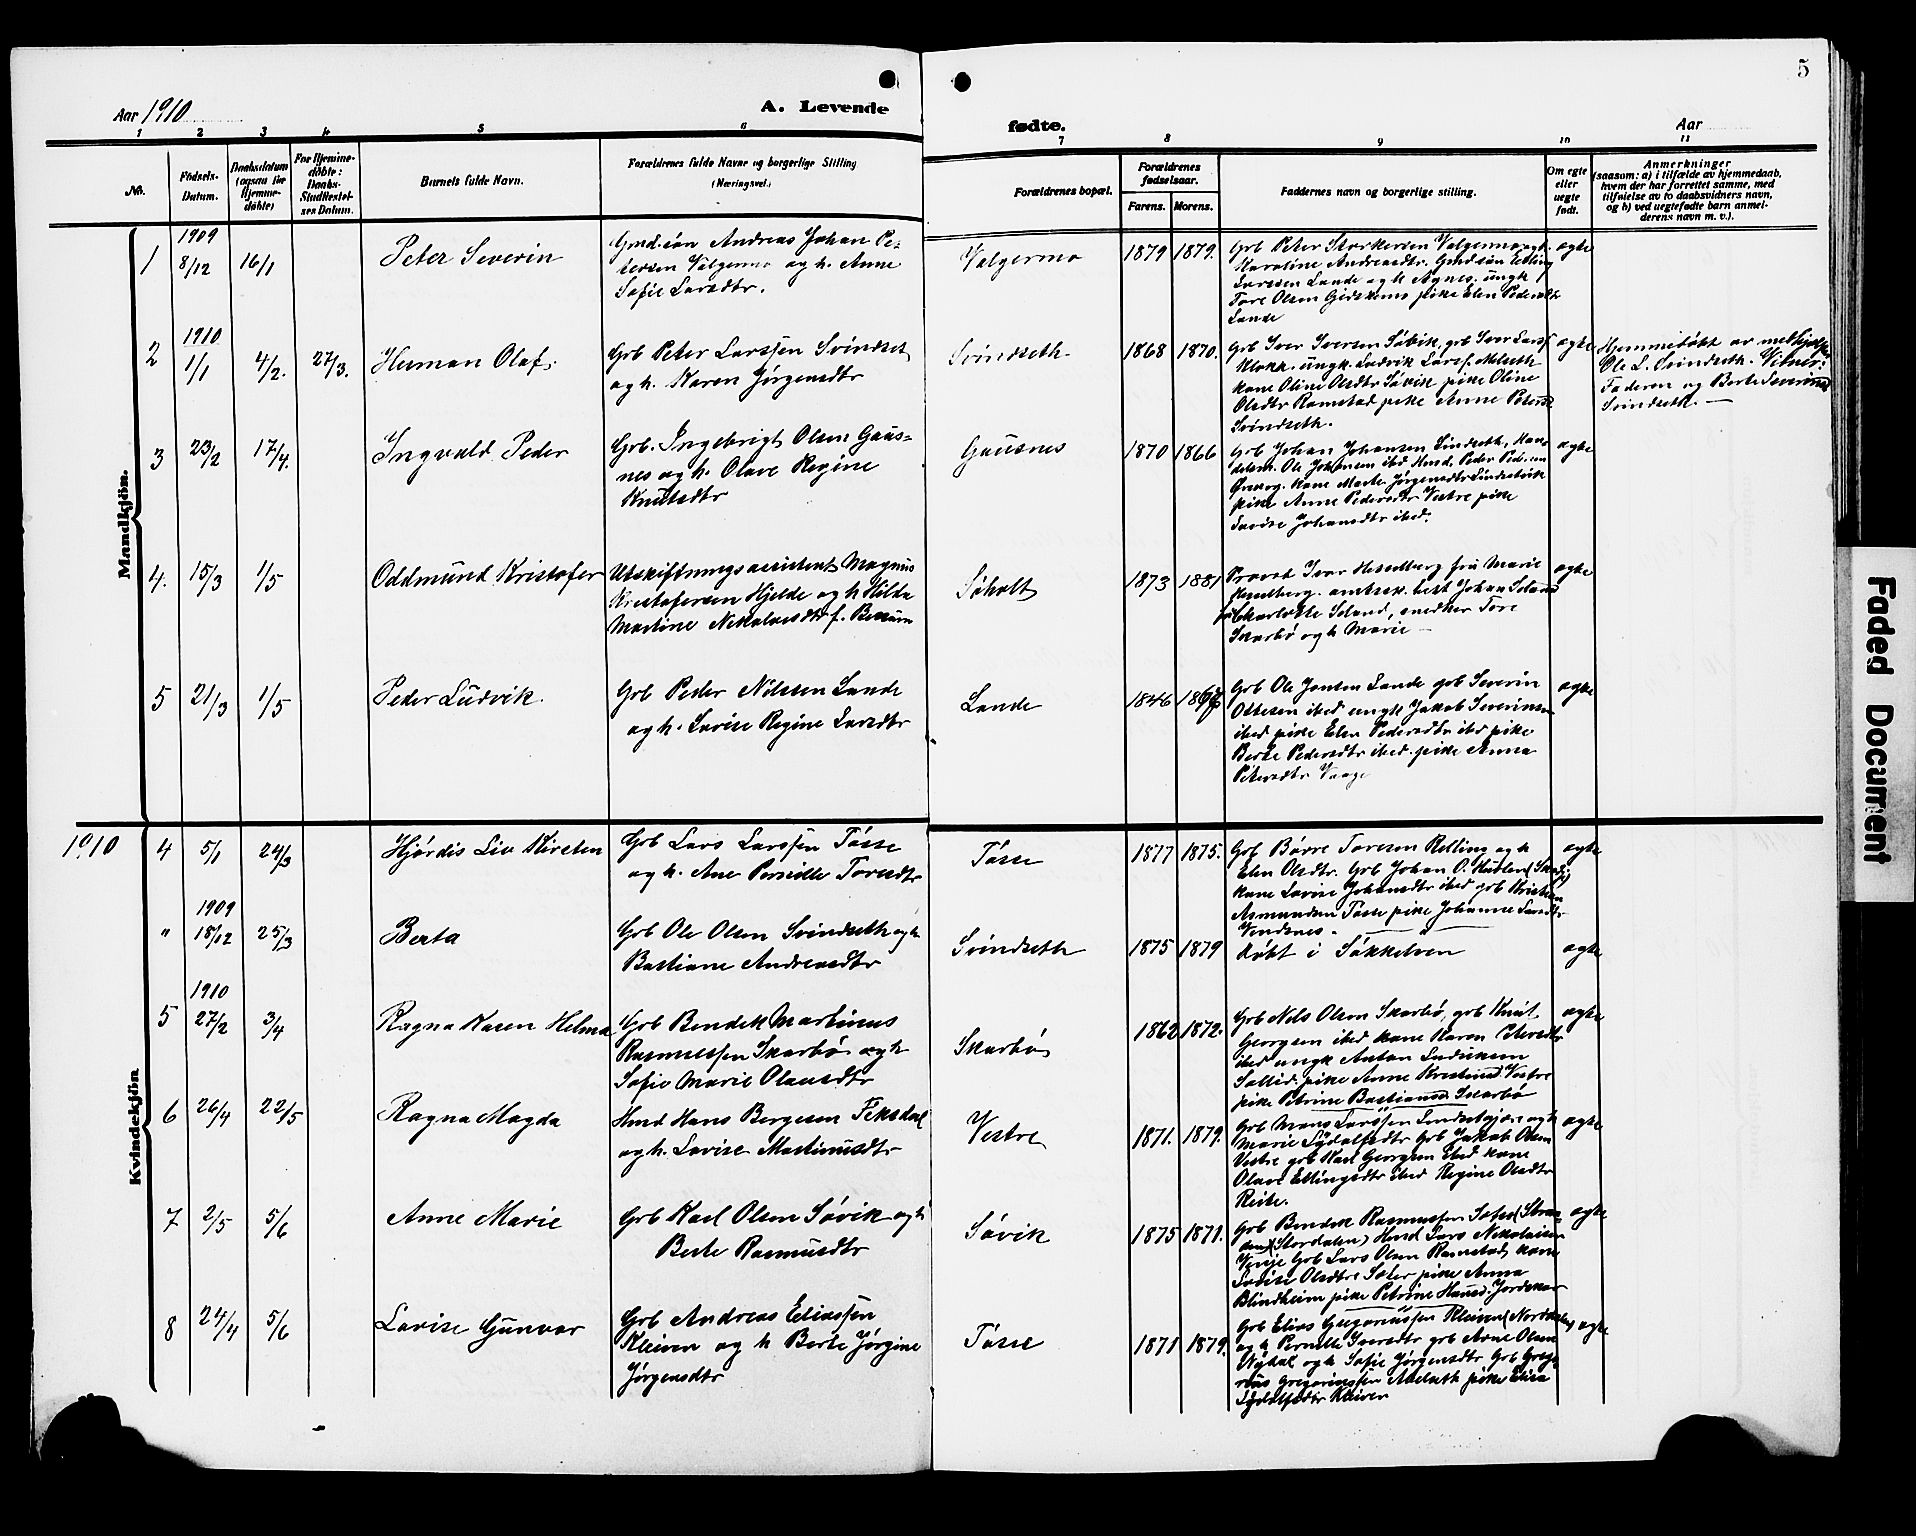 5
Aar 1910
A. Levende
fødte.
Aar
1 2 3 4 5 6 7 8 9 10 11
No.
Fødsels-
Datum.
Daabsdatum
(ogsaa for
Hjemme-
døbte)
For Hjemme-
døbte:
Daabs-
Stadfæstel-
ses Datum.
Barnets fulde Navn.
Forældrenes fulde Navne og borgerlige Stilling
(Næringsvei.)
Forældrenes bopæl.
Forældrenes
fødselsaar.
Farens. Morens.
Faddernes navn og borgerlige stilling.
Om egte
eller
uegte
født.
Anmerkninger
(saasom: a) i tilfælde av hjemmedaab,
hvem der har forrettet samme, med
tilføielse av to daabsvidners navn,
og b) ved uegtefødte barn anmel-
derens navn m. v.).
Mandkjön.
1
1909
8/12
16/1
Peter Severin
Gmd.søn Andreas Johan Pe-
tersen Valgermo og h. Anne
Sofie Larsdtr.
Valgermo
1879 1879.
Grb Peter Storkersen Valgermo og h.
Karoline Andreasdtr. Gmdsøn Elling
Larssen Lande og h Agnes, ungk
Tore Olsen Gjøskenes pike Elen Pedersdtr
Lande
egte
2
1910
1/1
4/2.
27/3.
Herman Olaf.
Grb Peter Larssen Svindset
og h. Karen Jørgensdtr
Svindseth.
1868 1870.
Grb Iver Iversen Søvik, grb Iver Larss.
Klokk. ungk. Ludvik Larss. Melseth
kone Oline Olsdtr Søvik pike Oline
Olsdtr Ramstad pike Anne Petersd
Svindseth.
egte
Hjemmedøbt av medhjelper
Ole L. Svindseth. Vitner:
Faderen og Berte Severinsd
Svindseth. —
3
23/2
17/4.
Ingvald Peder
Grb. Ingebrigt Olsen Gaus-
nes og h. Olave Regine
Knutsdtr
Gausnes
1870 1866
Grb Johan Johansen Lindseth, Han-
delsm. Ole Johansen ibd Hmd. Peder Pedersen
kone Marte Jørgensdtr Lindsetvik
pike Anne Pedersdtr Vestre pike
Lovise Johansdtr ibid.
egte
4.
15/3
1/5
Oddmund Kristofer
Utskiftningsassistent Magnus
Kristofersen Hjelde og h Hilda
Martine Nikolaisdtr f. Bessum
Søholt
1873 1881
Provst Ivar Hesselberg fru Marie
Hesselberg. amtssk. best Johan Soland
fru Charlotte Soland, snedker Tore
Skarbø og h Marie —
egte
5
21/3
1/5
Peder Ludvik.
Grb Peder Nilssen Lande
og h. Lovise Regine Larsdtr
Lande
1846
Grb Ole Jonsen Lande grb Severin
Ottesen ibid ungk Jakob Severinsen
ibid pike Elen Pedersdtr ibd pike
Berte Pedersdtr ibid. pike Anna
Petersdtr Vaage
egte
Kvindekjön
1910
4
5/1
24/3
Hjørdis Liv Kirsten
Grb Lars Larssen Tøsse
og h. Ane Pernille Toresdtr
Tøsse
1877 1875.
Grb Børre Toresen Relling og h
Elen Olsdtr. Grb Johan O. Hudlen (Skodje)
kone Lovise Johansdtr ibid grb Kristen
Asmundsen Tøsse pike Johanne Larsdtr
Vendsnes.
egte
"
1909
18/12
25/3
Berta
Grb Ole Olsen Svindseth og h
Bastiane Andreasdtr
Svindseth
1875 1879
døbt i Søkkelven
egte
5
1910
27/2
3/4
Ragna Karen Helma
Grb Bendik Martinus
Rasmussen Skarbø og h
Sofie Marie Olausdtr
Skarbø
1862 1872.
Grb Nils Olsen Skarbø, grb Knut
Georgsen ibid kone Karen Petersdtr
ibid ungk Anton Ludviksen
Solli. pike Anne Kristined Vestre
pike Petrine Bastiansd Skarbø
egte
6
26/4
22/5
Ragna Magda
Hmd Hans Bergesen Fiksdal
og h. Lovise Martinusdtr
Vestre
1871. 1879.
Grb Mons Larssen Lindsetvik og h
Marie Sydalfsdtr Grb Jakob Olsen
Vestre grb Karl Georgsen ibid kone
Olave Ellingsdtr ibid Regine Olsdtr
Reite.
egte
7
2/5
5/6
Anne Marie
Grb Karl Olsen Søvik og h
Berte Rasmusdtr
Søvik
1875 1871.
Grb Bendik Rasmussen
(Stordalen) Hmd Lars Nikolaisen
Grb Lars Olsen Ramstad, kone
Lovise Olsdtr Sæter pike Anna
Blindheim pike Petrine Hansd. Jordskar
egte
8
24/4
5/6
Lovise Gunvor
Grb Andreas Eliassen
Kleiven og h Berte Jørgine
Jørgensdtr
Tøsse
1871 1879.
Grb Elias Gregoriussen Kleiven (Norddalen)
og h Pernille Iversdtr grb Arne Olsen
Nydal og h Sofie Jørgensdtr Grb Grego-
rius Gregoriussen Melseth pike Elisa
Sydalfsdtr Kleiven
egte
Faded Document